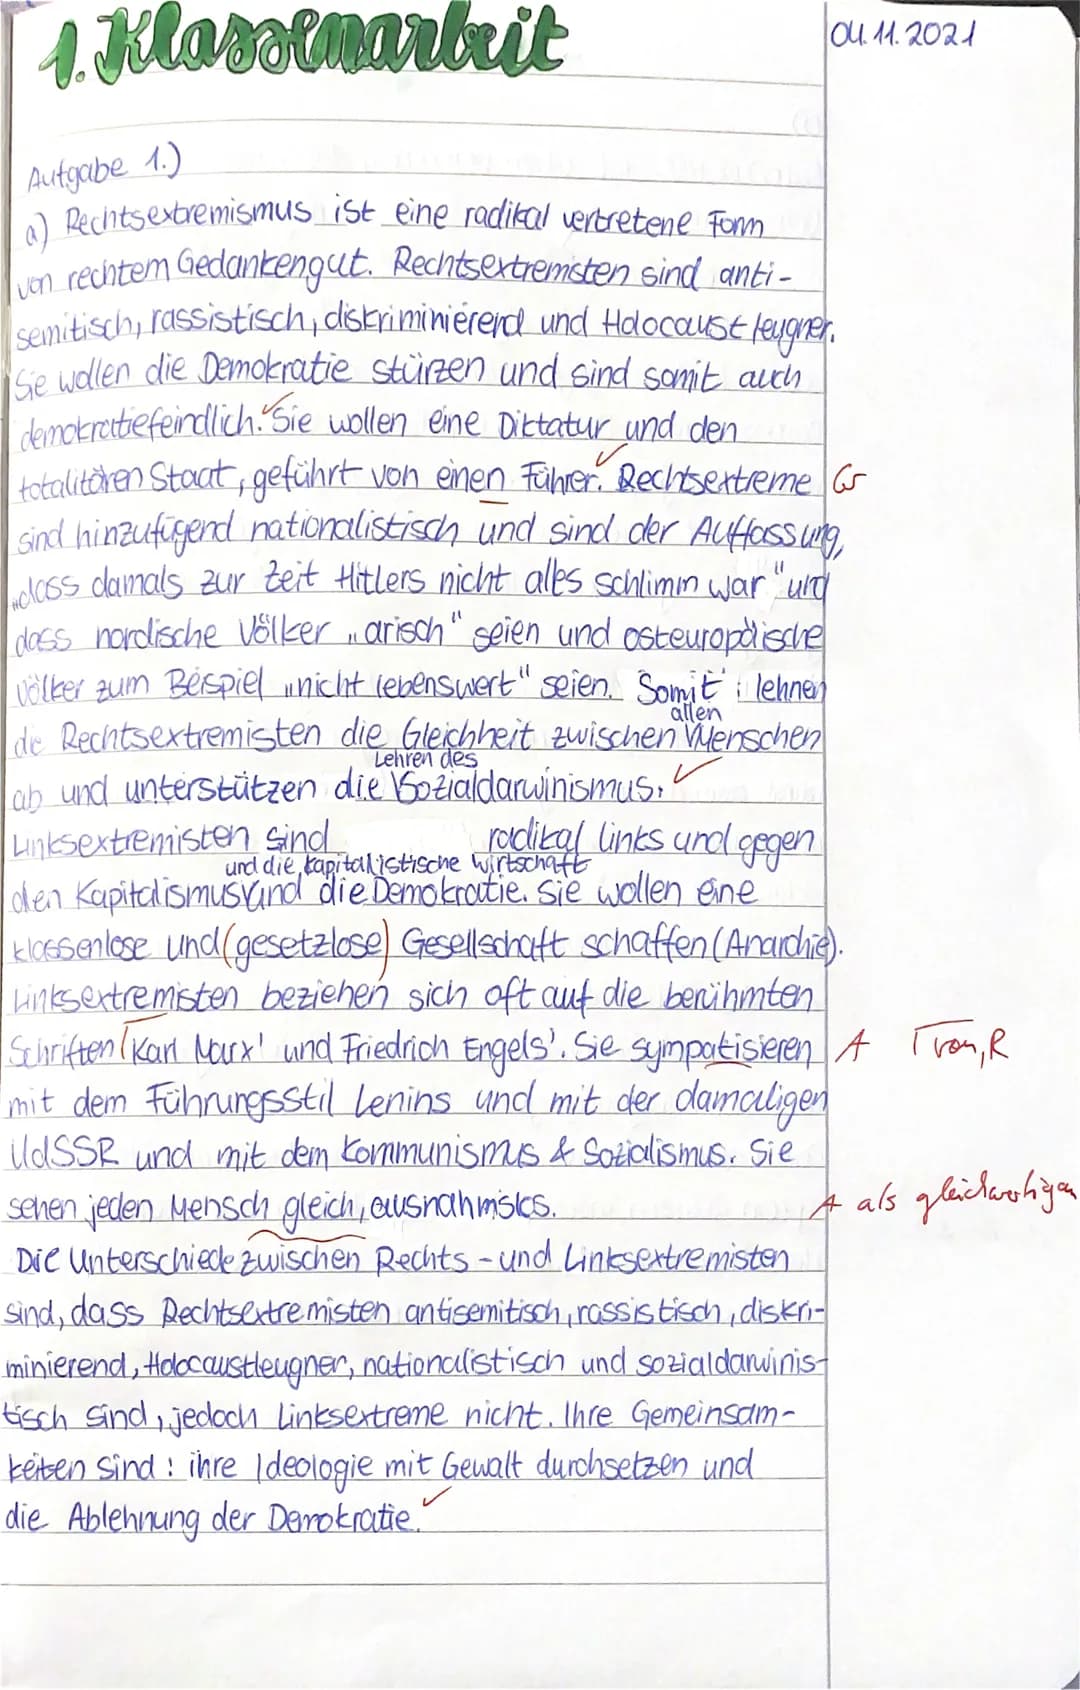 1. Klassenarbeit
04.11.2021
Aufgabe 1.)
a) Rechtsextremismus ist eine radikal vertretene Form
von rechtem Gedankengut. Rechtsextremisten sind anti-
semitisch, rassistisch, diskriminierend und Holocaustleugner.
Sie wollen die Demokratie stürzen und sind somit auch
demokratiefeindlich. Sie wollen eine Diktatur und den
totalitären Staat, geführt von einen Führer. Rechtsextreme Gr
sind hinzufügend nationalistisch und sind der Auffassung,
„dass damals zur Zeit Hitlers nicht alles schlimm war" und
dass nordische Völker „arisch" seien und osteuropäische
Völker zum Beispiel „nicht lebenswert" seien. Somit lehnen
allen
die Rechtsextremisten die Gleichheit zwischen Menschen
Lehren des
ab und unterstützen die Sozialdarwinismus.
Linksextremisten sind radikal links und gegen
und die kapitalistische Wirtschaft
den Kapitalismus und die Demokratie. Sie wollen eine
klassenlose und (gesetzlose) Gesellschaft schaffen (Anarchie).
Linksextremisten beziehen sich oft auf die berühmten
Schriften Karl Marx' und Friedrich Engels'. Sie sympatisieren A von, R
mit dem Führungsstil Lenins und mit der damaligen
UdSSR und mit dem Kommunismus & Sozialismus. Sie
sehen jeden Mensch gleich, ausnahmslos. A als gleichwertigen
Die Unterschiede zwischen Rechts- und Linksextremisten
sind, dass Rechtsextremisten antisemitisch, rassistisch, diskri-
minierend, Holocaustleugner, nationalistisch und sozialdarwinis-
tisch sind, jedoch Linksextreme nicht. Ihre Gemeinsam-
keiten sind: ihre Ideologie mit Gewalt durchsetzen und
die Ablehnung der Demokratie.